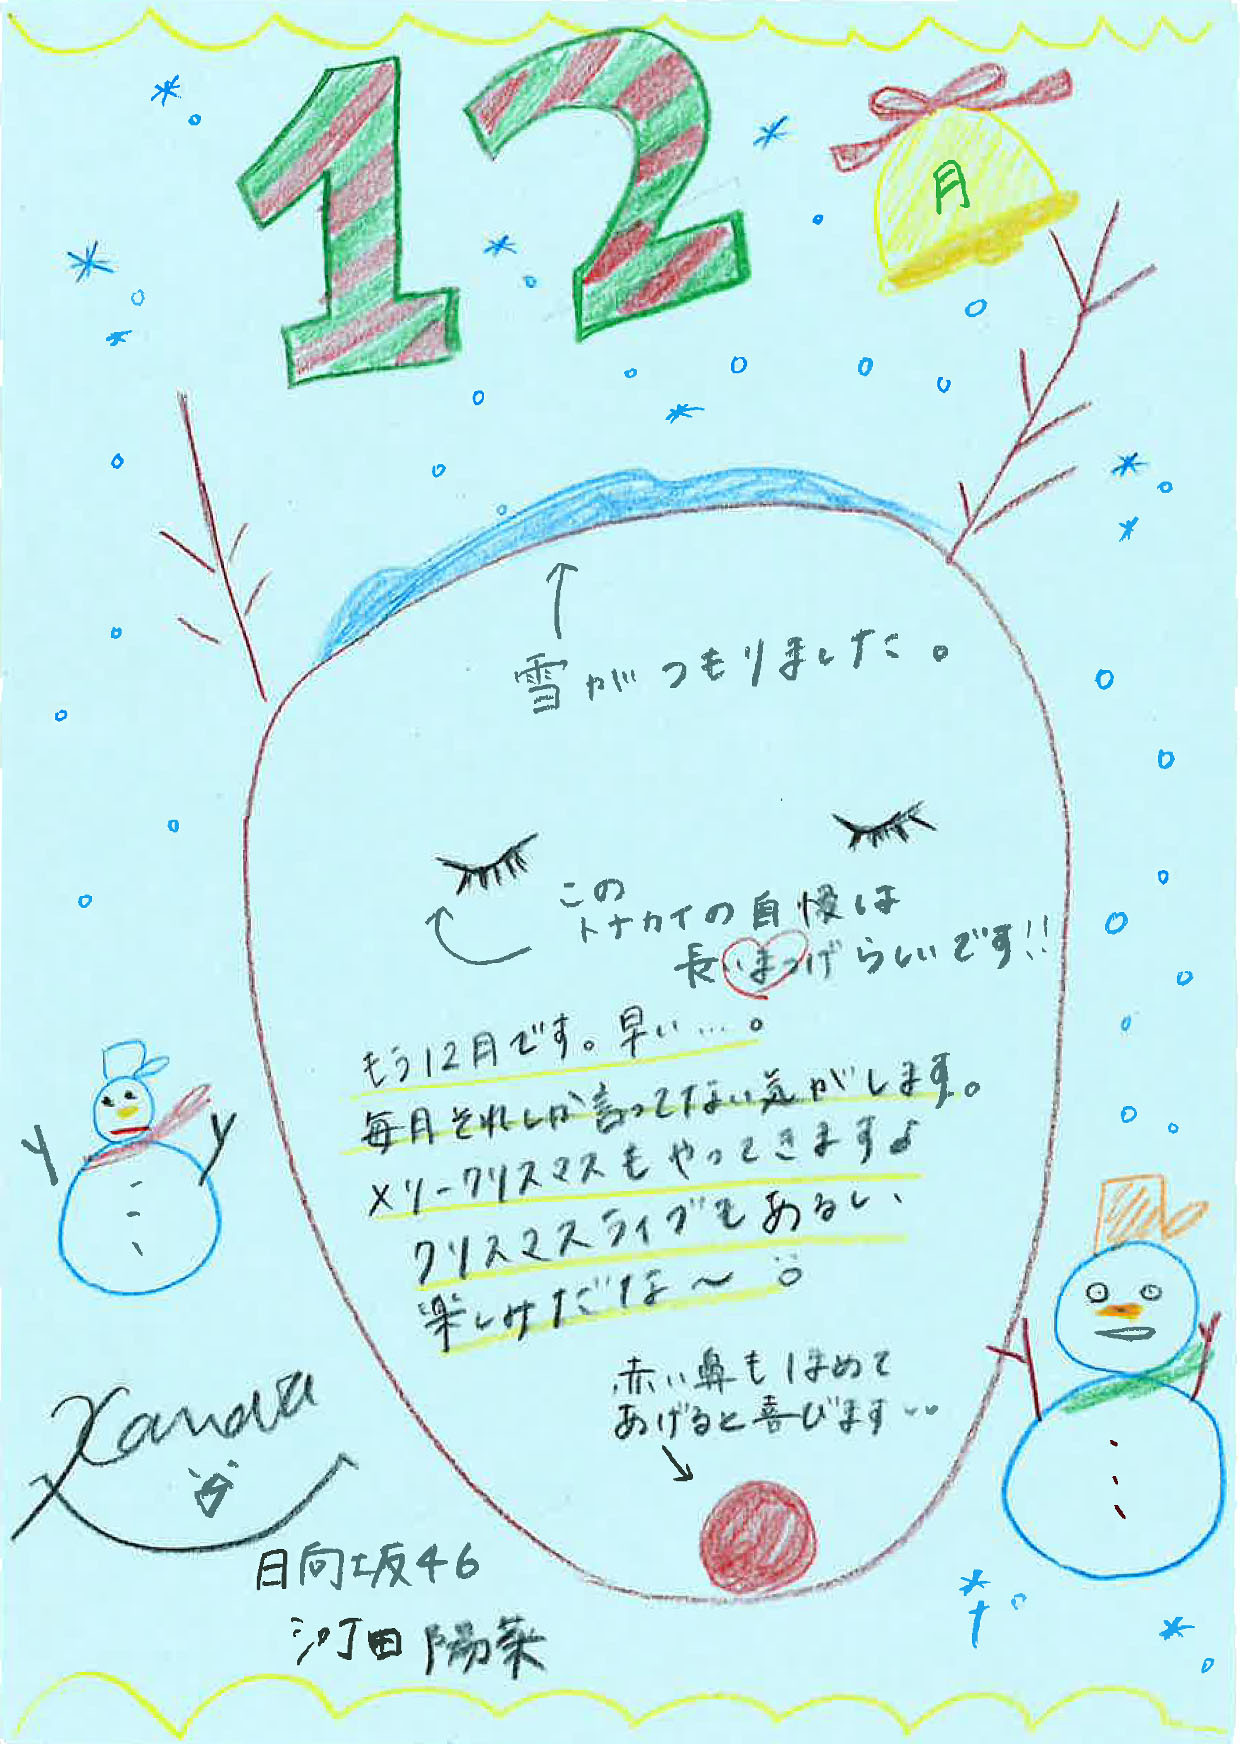 12月
雪がつもりました。
この
トナカイの自慢は
長いまつげらしいです!!
もう12月です。早い…。
毎月それしか言ってない気がします。
メリークリスマスもやってきます♪
クリスマスライブもあるし、
楽しみだな〜
赤い鼻もほめて
あげると喜びます
日向坂46
河田陽菜